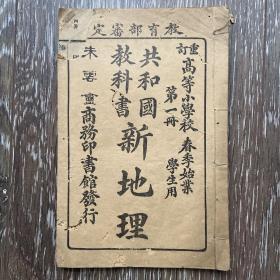 定審部育教
重訂
高等小學校 春季始業
第一冊 學生用
共和國
教科書
新地理
商務印書館發行
朱雲